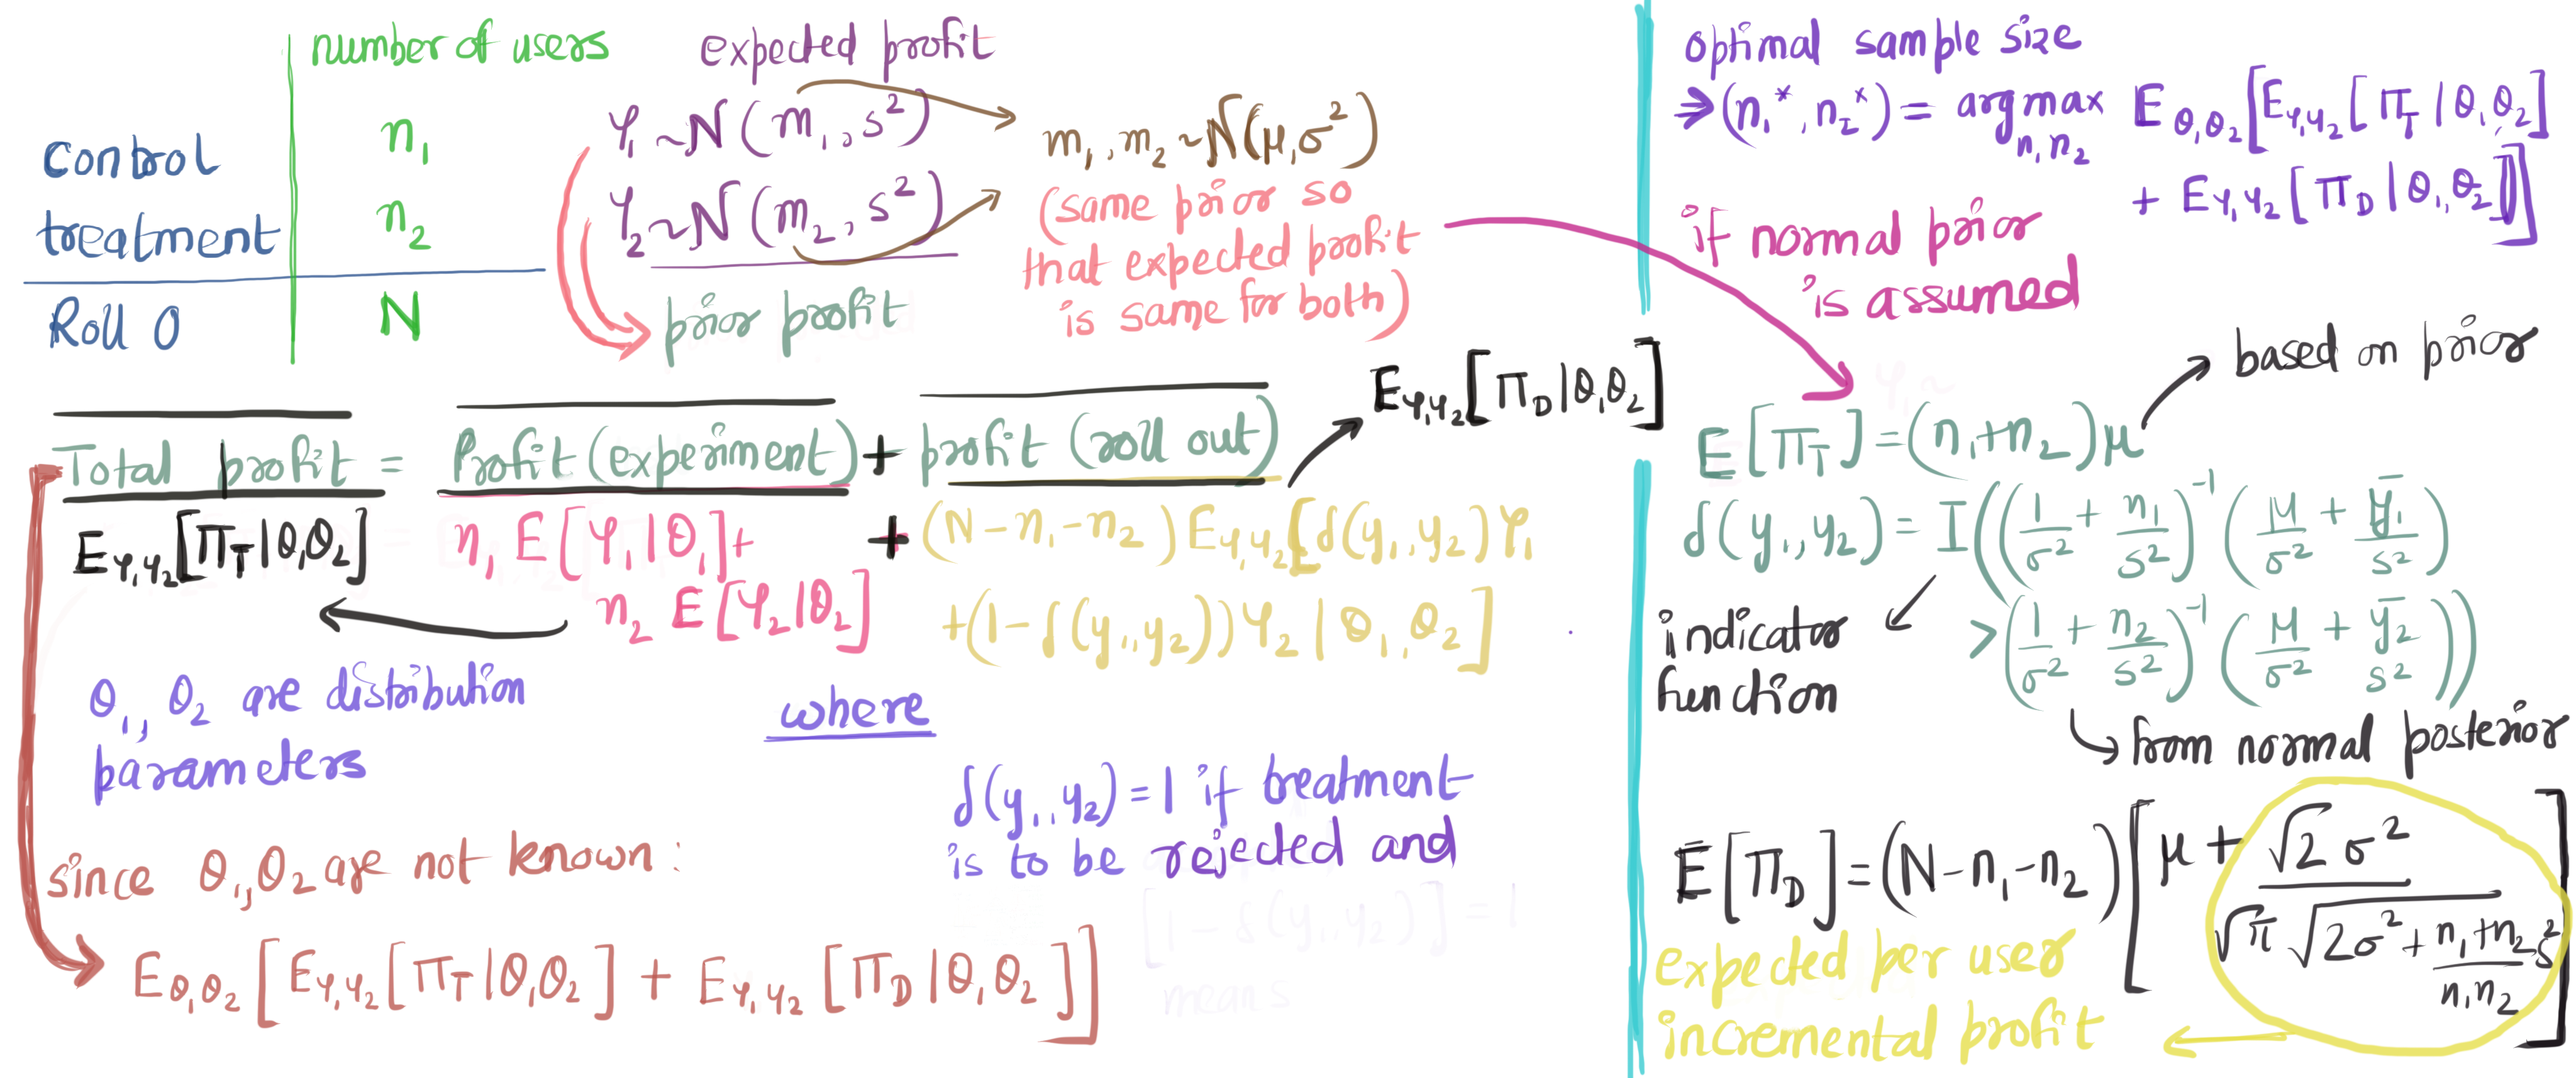 number of users
expected profit
control n₁ Y₁ ~ N(m₁, s²)
treatment n₂ Y₂ ~ N(m₂, s²)
Roll O N
prior profit
m₁, m₂ ~ N(μ, σ²)
(same prior so
that expected profit
is same for both)
Total profit = Profit (experiment) + profit (roll out)
E_Y₁Y₂[Π_D | θ₁θ₂]
E_Y₁Y₂[Π_T | θ₁θ₂]
n₁ E[Y₁ | θ₁] +
n₂ E[Y₂ | θ₂]
+ (N - n₁ - n₂) E_Y₁Y₂[δ(y₁, y₂) Y₁
+ (1 - δ(y₁, y₂)) Y₂ | θ₁, θ₂]
θ₁, θ₂ are distribution
parameters
where
δ(y₁, y₂) = 1 if treatment
is to be rejected and
[1 - δ(y₁, y₂)] = 1
means
since θ₁, θ₂ are not known :
E_θ₁θ₂[E_Y₁Y₂[Π_T | θ₁θ₂] + E_Y₁Y₂[Π_D | θ₁θ₂]]
optimal sample size
→ (n₁*, n₂*) = argmax n₁ n₂ E_θ₁θ₂[E_Y₁Y₂[Π_T | θ₁θ₂]
+ E_Y₁Y₂[Π_D | θ₁θ₂]]
if normal prior
is assumed
based on prior
E[Π_T] = (n₁+n₂)μ
δ(y₁, y₂) = I((1/σ² + n₁/s²)⁻¹ (μ/σ² + ȳ₁/s²)
> (1/σ² + n₂/s²)⁻¹ (μ/σ² + ȳ₂/s²))
indicator
function
from normal posterior
E[Π_D] = (N - n₁ - n₂)[μ + √2 σ² / (√π √(2σ² + (n₁+n₂)/(n₁n₂) s²))]
expected per user
incremental profit